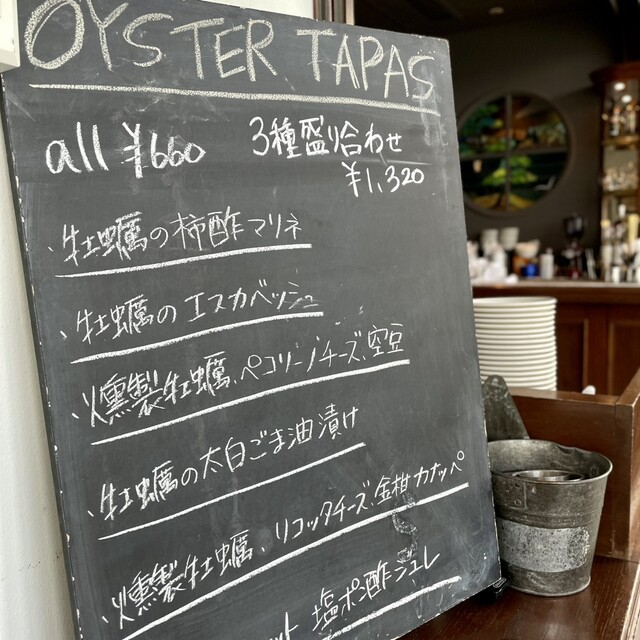 OYSTER TAPAS
all ¥660 3種盛り合わせ
¥1,320
、牡蠣の柿酢マリネ
、牡蠣のエスカベッシュ
、燻製牡蠣、ペコリーノチーズ、空豆
、牡蠣の太白ごま油漬け
、燻製牡蠣、リコッタチーズ、金柑カナッペ
塩ポン酢ジュレ